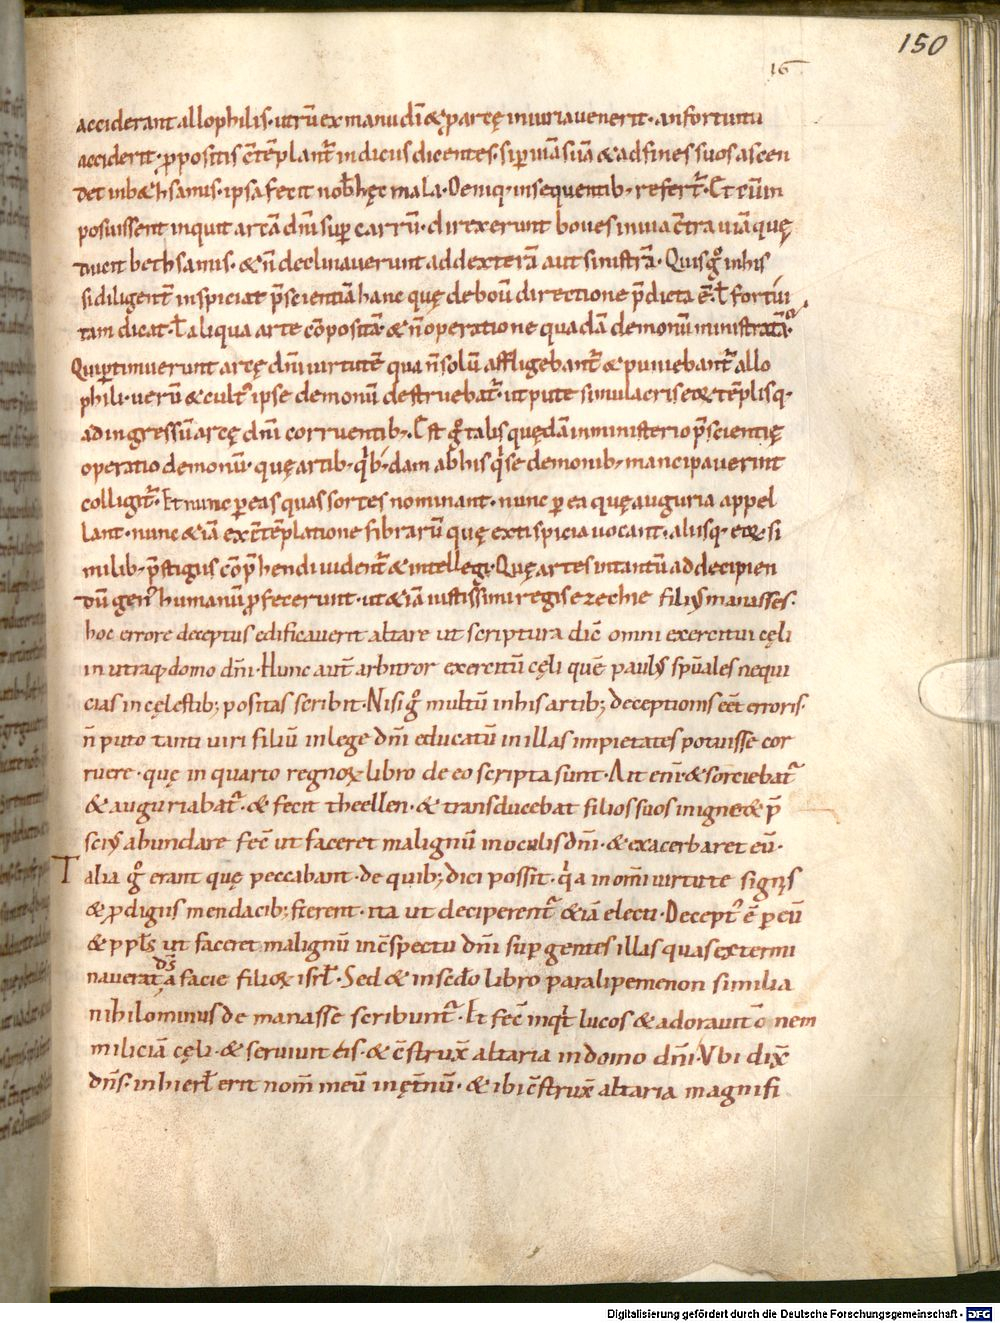 150
16
acciderant allophilis· utrū ex manu dī & parcę iniuria uenerit· an fortuitu
acciderit· ꝓpositis cͨtēplant̄ indicus dicentes· si ꝑ uiā suā & ad fines suos ascen
det in b&hsamis· ipsa fecit nob̄ hęc mala· Deniq· in sequentib; refert̄· Et cū in
posuissent inquit arcā dnī suꝑ carrū· direxerunt boues in uia cͨtra uiā quę
ducit bethsamis· & n̄ declinauerunt ad dexterā aut sinistrā· Quis gͦ in his
si diligent̄ inspiciat p̄scientiā hanc quę de boū directione p̄dicta ē· ł fortui
tam dicat· ł aliqua arte cōpositā· & n̄ operatione quadā demonū ministratā·
Qui ꝑtimuerunt arcę dnī uirtutē qua n̄ solū affligebant̄ & puniebant̄ allo
phili· uerū & cult' ipse demonū destruebat̄· utpute simulacris eoꝝ & tēplisq·
ad ingressū arcę dnī corruentib;· Est gͦ talis quędā in ministerio p̄scientię
operatio demonū· quę artib; qͥb;dam ab his qͥ se demonib; mancipauerint
colligit̄· Et nunc ꝑ eas quas sortes nominant· nunc ꝑ ea quę auguria appel
lant· nunc &iā ex cͨtēplatione fibrarū quę extispicia uocant· aliisq· eoꝝ si
milib; p̄stigiis cōp̄hendi uident̄ & intellegi· Quę artes in tantū ad decipien
dū gen' humanū ꝓfecerunt· ut &iā iustissimi regis ezechie filiꝰ manasses·
hoc errore deceptus edificauerit altare ut scriptura dic̄ omni exercitui cęli
in utraq; domo dnī· Hunc aut̄ arbitror exercitū cęli quē paulꝰ spūales nequi
cias in cęlestib; positas scribit· Nisi gͦ multū in his artib; deceptionis eēt erroris·
n̄ puto tanti uiri filiū in lege dnī educatū in illas impietates potuisse cor
ruere· quę in quarto regnoꝝ libro de eo scripta sunt· Ait eni· & sorciebat̄
& auguriabat̄· & fecit theellen· & transducebat filios suos in igne & p̄
sciꝰ abundare fec̄ ut faceret malignū in oculis dnī· & exacerbaret eū·
Talia gͦ erant quę peccabant· de quib; dici possit· qͥa in om̄i uirtute signis
& ꝓdigiis mendacib; fierent· ita ut deciperent̄ &iā electi· Decept' ē ꝑ eū
& ppłs ut faceret malignū in cͨspectu dnī suꝑ gentes illas quas extermi
nauerat d̄s a facie filioꝝ isrł· Sed & in sc̄do libro paralipemenon similia
nihilominus de manasse scribunt̄· Et fec̄ inqͥt lucos & adorauit ō nem
miliciā cęli· & seruiuit eis· & cͨstrux̄ altaria in domo dnī· Vbi dix̄
dn̄s· in hierł erit nom̄ meū in ęt̄nū· & ibi cͨstrux̄ altaria magnifi
Digitalisierung gefördert durch die Deutsche Forschungsgemeinschaft - DFG